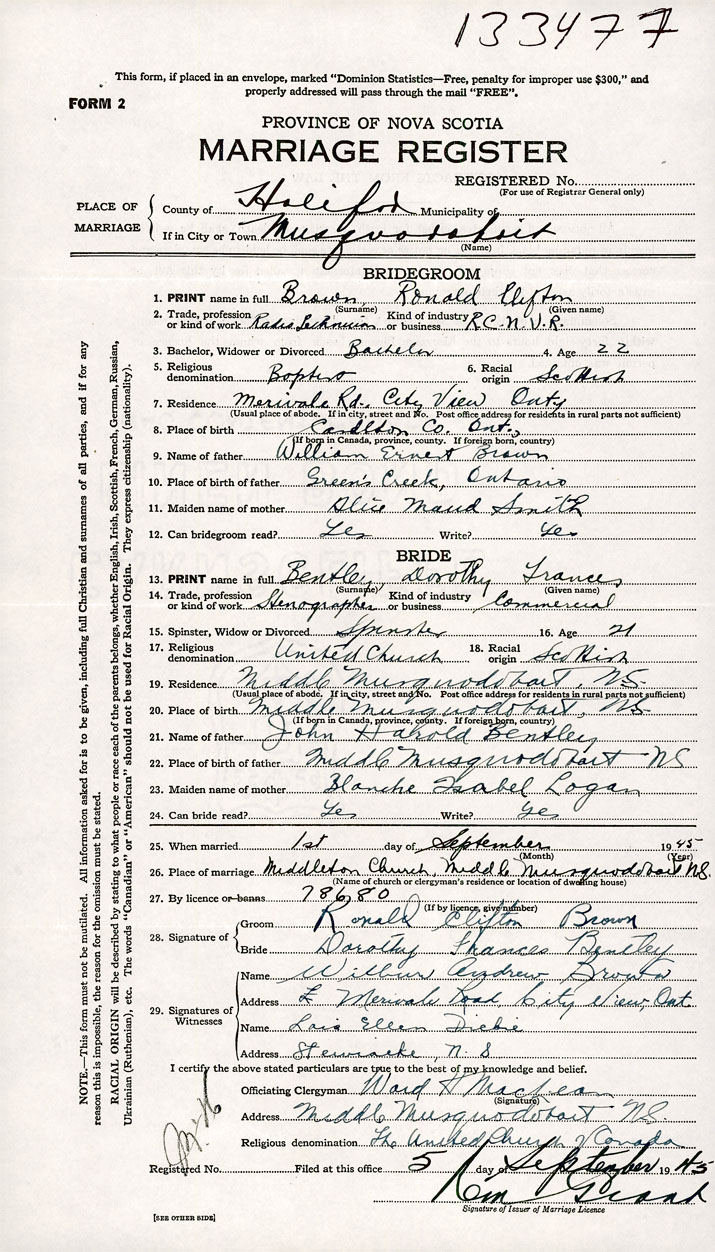 133477
This form, if placed in an envelope, marked "Dominion Statistics—Free, penalty for improper use $300," and
properly addressed will pass through the mail "FREE".
FORM 2
PROVINCE OF NOVA SCOTIA
MARRIAGE REGISTER
REGISTERED No.
(For use of Registrar General only)
PLACE OF MARRIAGE
County of Halifax Municipality of
If in City or Town Musquodoboit
(Name)
BRIDEGROOM
1. PRINT name in full Brown, Ronald Clifton
(Surname) (Given name)
2. Trade, profession or kind of work Radio Technician Kind of industry or business R.C.N.V.R.
3. Bachelor, Widower or Divorced Bachelor 4. Age 22
5. Religious denomination Baptist 6. Racial origin Scottish
7. Residence Merivale Rd., City View Ont
(Usual place of abode. If in city, street and No. Post office address for residents in rural parts not sufficient)
8. Place of birth Carleton Co. Ont.
(If born in Canada, province, county. If foreign born, country)
9. Name of father William Ernest Brown
10. Place of birth of father Green's Creek, Ontario
11. Maiden name of mother Alice Maud Smith
12. Can bridegroom read? Yes Write? Yes
BRIDE
13. PRINT name in full Bentley, Dorothy Frances
(Surname) (Given name)
14. Trade, profession or kind of work Stenographer Kind of industry or business Commercial
15. Spinster, Widow or Divorced Spinster 16. Age 21
17. Religious denomination United Church 18. Racial origin Scottish
19. Residence Middle Musquodoboit, NS
(Usual place of abode. If in city, street and No. Post office address for residents in rural parts not sufficient)
20. Place of birth Middle Musquodoboit, NS
(If born in Canada, province, county. If foreign born, country)
21. Name of father John Harold Bentley
22. Place of birth of father Middle Musquodoboit NS
23. Maiden name of mother Blanche Isabel Logan
24. Can bride read? Yes Write? Yes
25. When married 1st day of September 1945
(Month) (Year)
26. Place of marriage Middleton Church, Middle Musquodoboit NS.
(Name of church or clergyman's residence or location of dwelling house)
27. By licence or banns 78680
(If by licence, give number)
28. Signature of
Groom Ronald Clifton Brown
Bride Dorothy Frances Bentley
29. Signatures of Witnesses
Name Wilbur Andrew Brown
Address Merivale Road, City View, Ont.
Name Lois Ellen Dickie
Address Stewiacke, N.S
I certify the above stated particulars are true to the best of my knowledge and belief.
Officiating Clergyman Ward H MacLean
(Signature)
Address Middle Musquodoboit NS
Religious denomination The United Church of Canada
Registered No. Filed at this office 5 day September 1945
Grant
Signature of Issuer of Marriage Licence
[SEE OTHER SIDE]
NOTE.—This form must not be mutilated. All information asked for is to be given, including full Christian and surnames of all parties, and if for any
reason this is impossible, the reason for the omission must be stated.
RACIAL ORIGIN will be described by stating to what people or race each of the parents belongs, whether English, Irish, Scottish, French, German, Russian,
Ukrainian (Ruthenian), etc. The words "Canadian" or "American" should not be used for Racial Origin. They express citizenship (nationality).